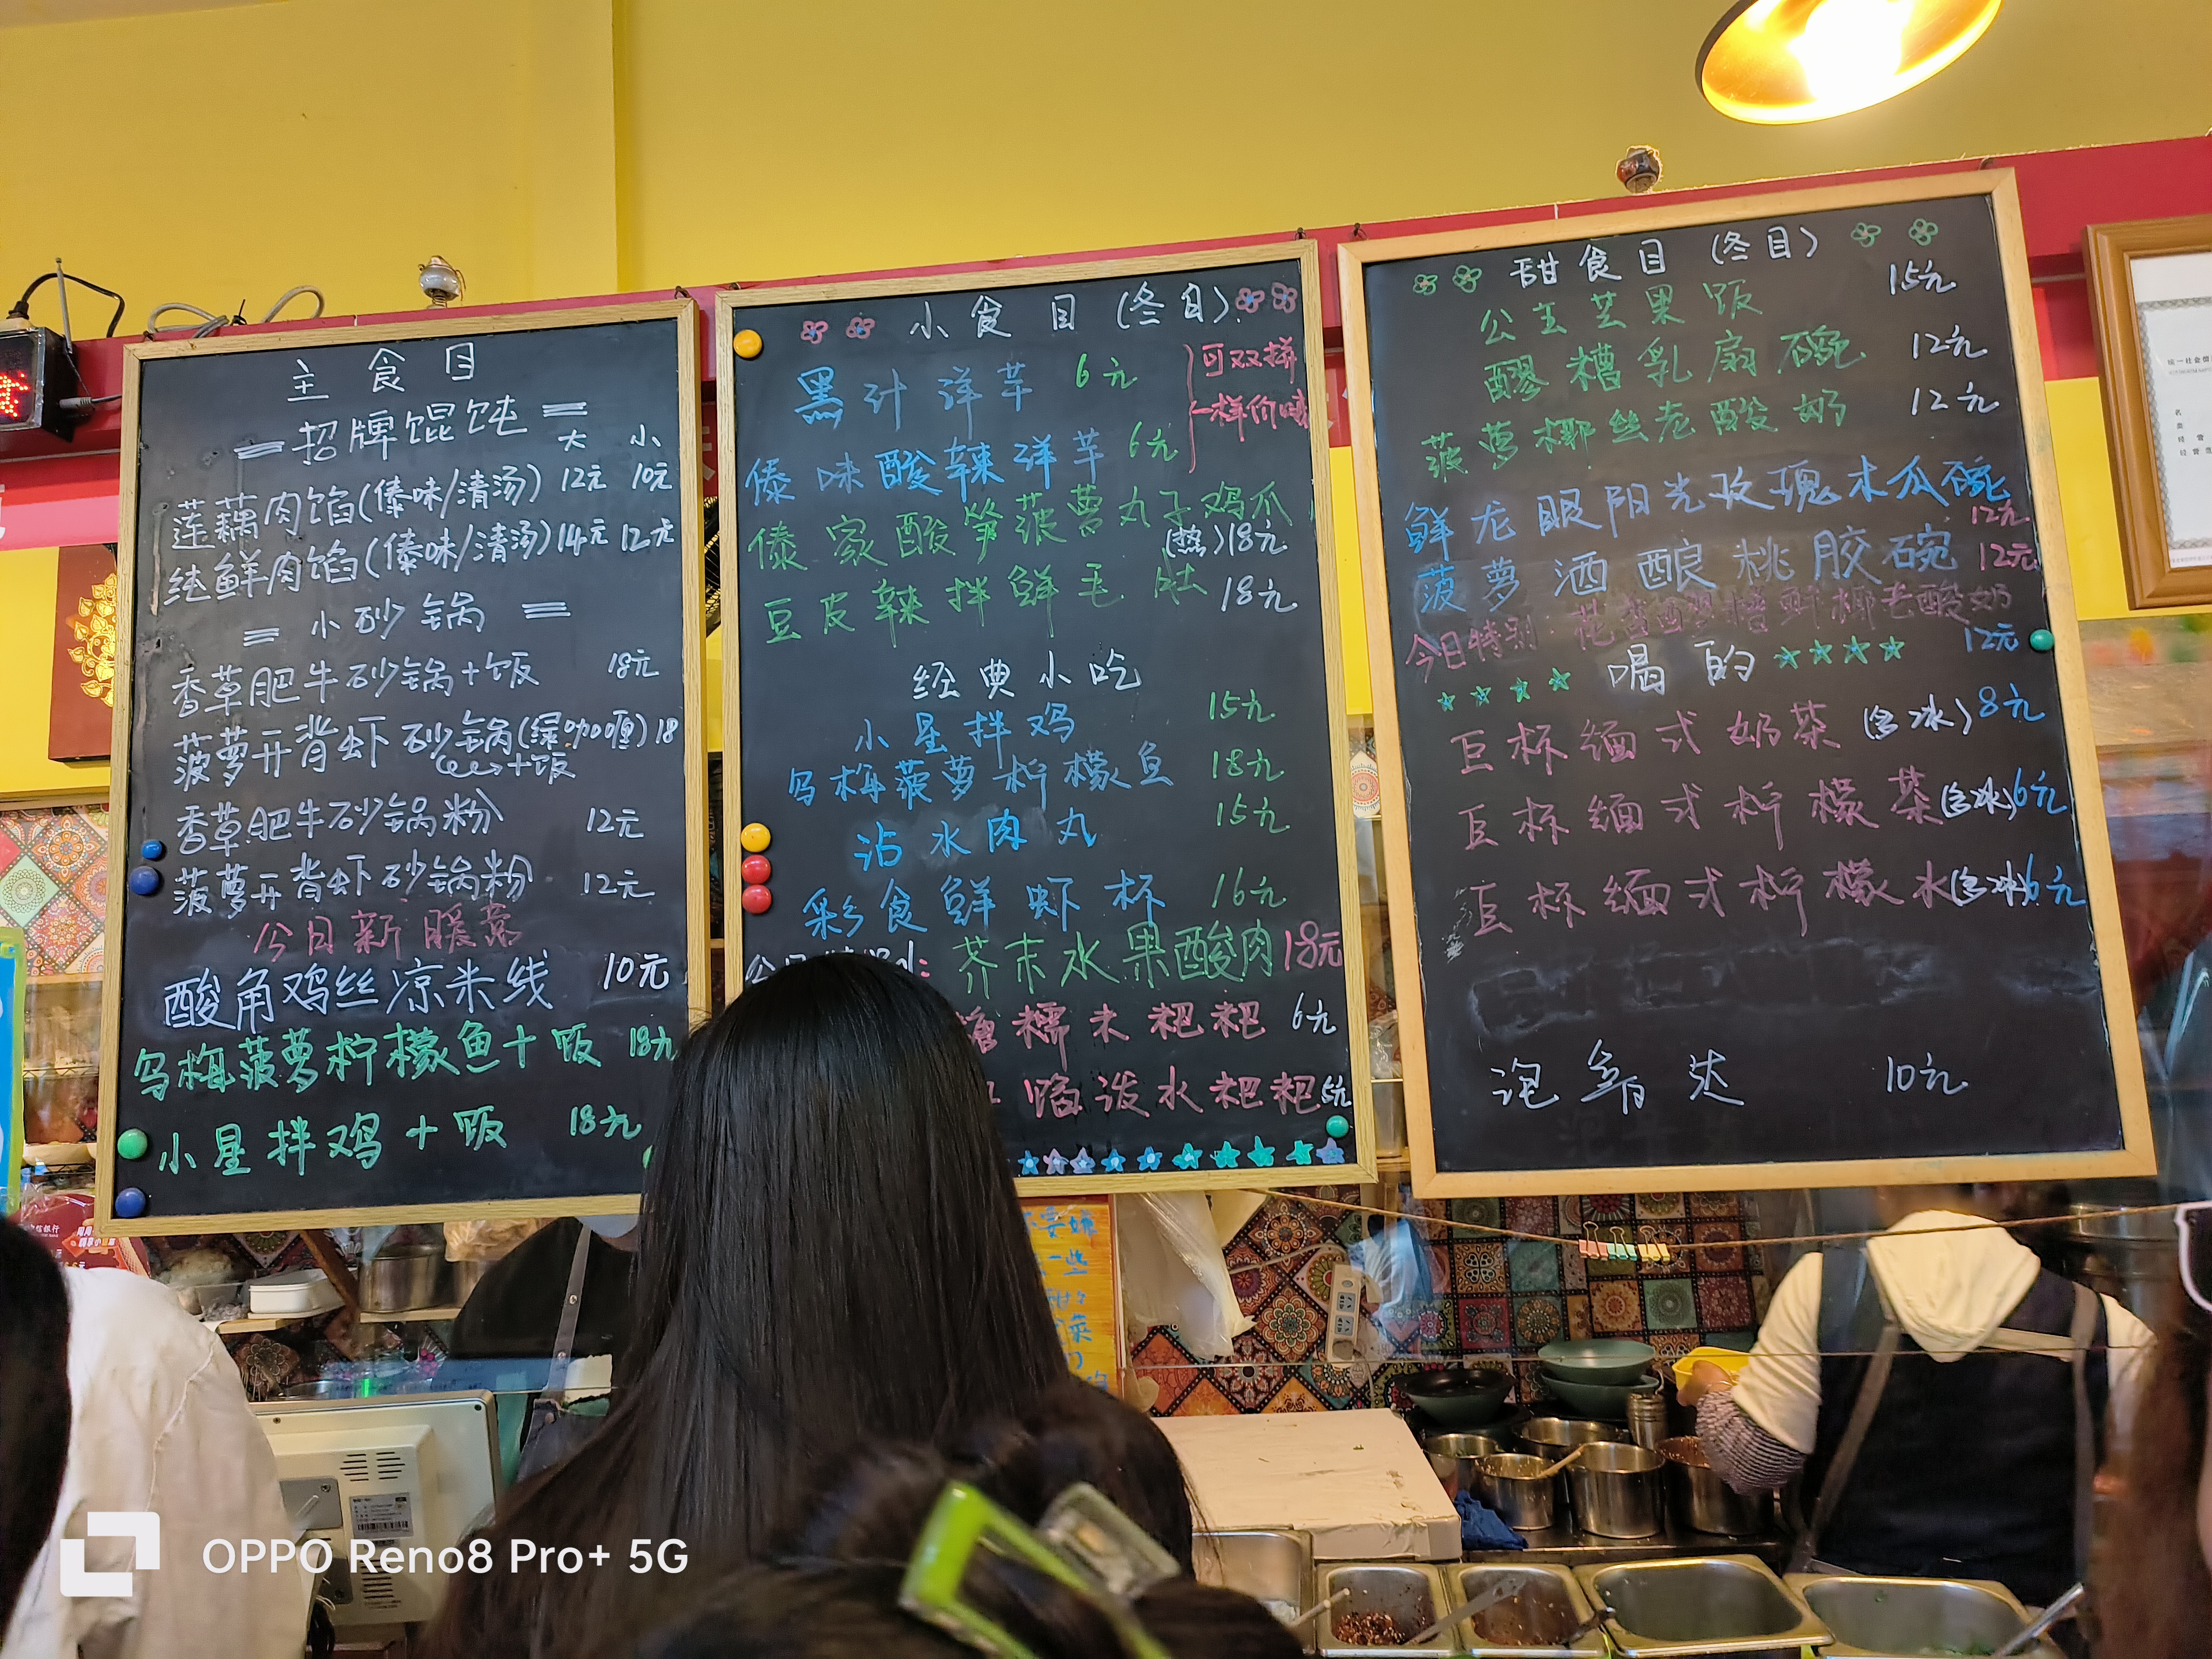 主食目
招牌馄饨
大 小
莲藕肉馅(傣味/清汤) 12元 10元
纯鲜肉馅(傣味/清汤) 14元 12元
小砂锅
香草肥牛砂锅+饭 18元
菠萝开背虾砂锅(绿咖喱) 18
+饭
香草肥牛砂锅粉 12元
菠萝开背虾砂锅粉 12元
今日新暖蒸
酸角鸡丝凉米线 10元
乌梅菠萝柠檬鱼+饭 18元
小星拌鸡+饭 18元
小食目(冬目)
黑汁洋芋 6元
可双拼
一样价哦
傣味酸辣洋芋 6元
傣家酸笋菠萝丸子鸡爪
(热)18元
豆皮辣拌鲜毛肚 18元
经典小吃
小星拌鸡 15元
乌梅菠萝柠檬鱼 18元
沾水肉丸 15元
彩食鲜虾杯 16元
芥末水果酸肉 18元
糯米粑粑 6元
馅泼水粑粑 5元
甜食目(冬目)
公主芒果饭 15元
醪糟乳扇碗 12元
菠萝椰丝老酸奶 12元
鲜龙眼阳光玫瑰木瓜碗
12元
菠萝酒酿桃胶碗 12元
今日特别:花香醪糟鲜椰老酸奶
12元
喝的
巨杯缅式奶茶(含冰) 8元
巨杯缅式柠檬茶(含冰) 6元
巨杯缅式柠檬水(含冰) 6元
泡鲁达 10元
OPPO Reno8 Pro+ 5G